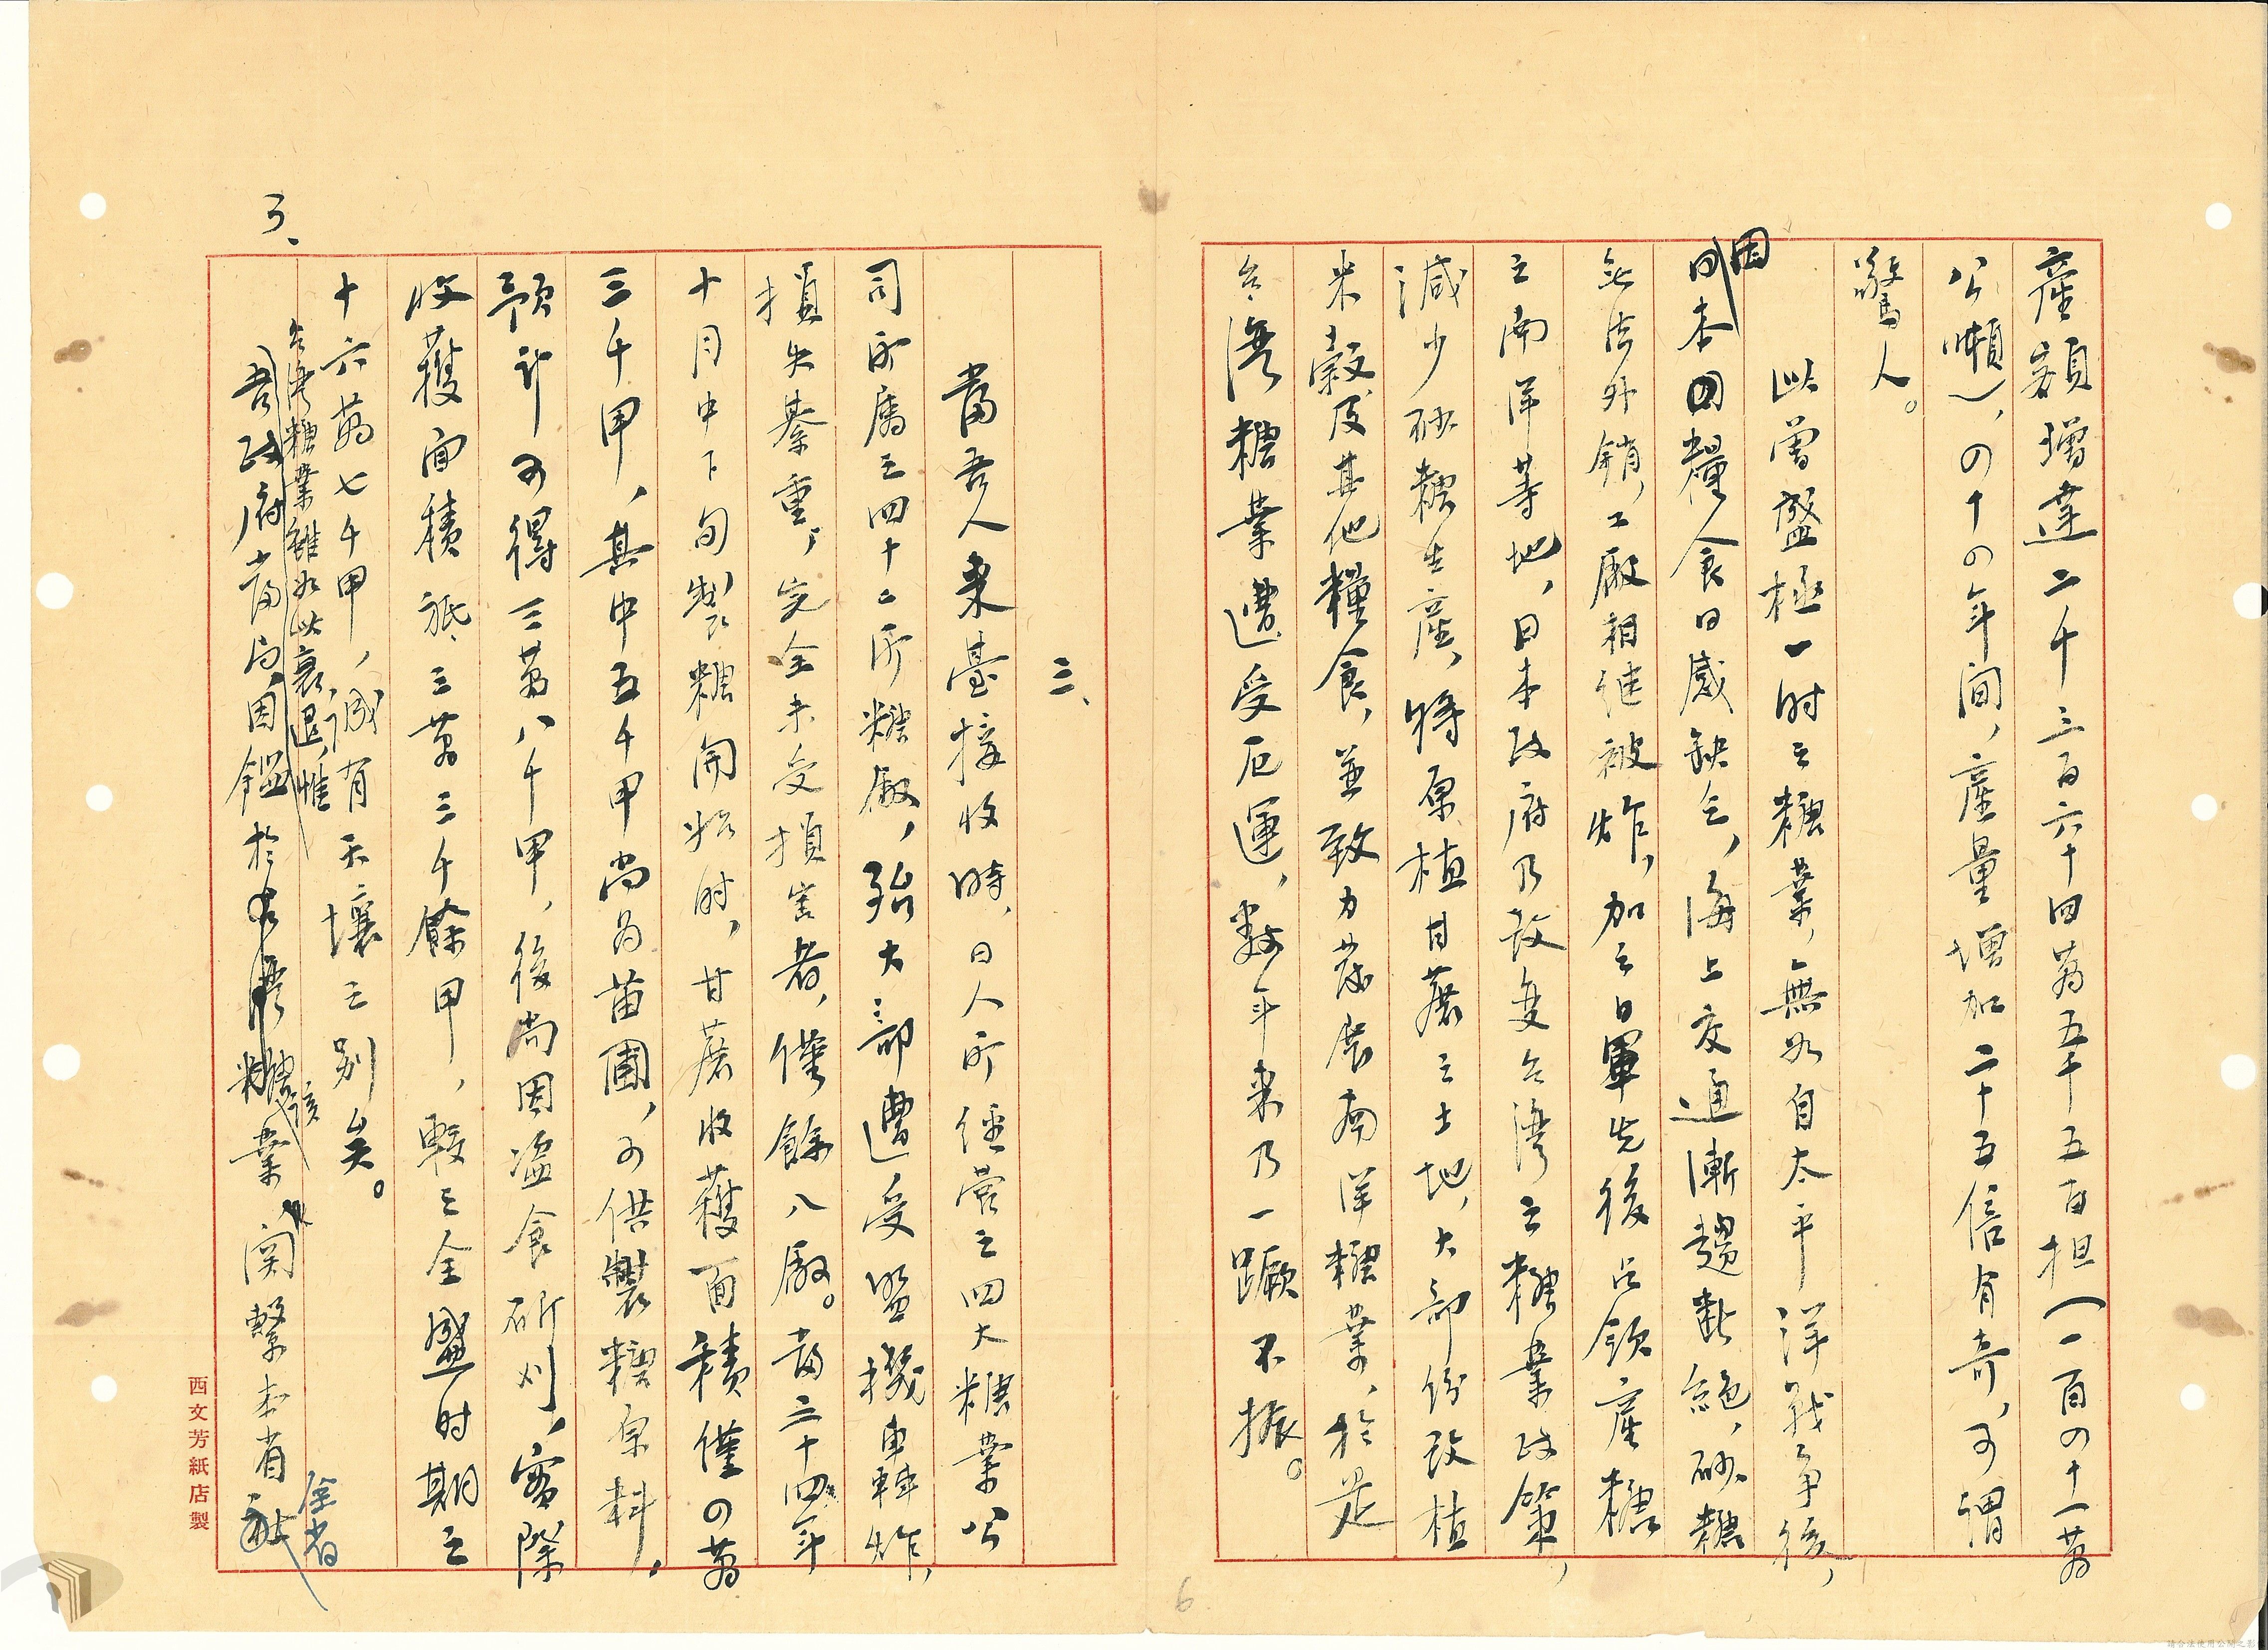 產額增達二千三百六十四萬五千五百担(一百〇十一萬
公噸)、〇十〇年间，產量增加二十五倍有奇，可謂
驚人。
此曾盛極一时之糖業，無如自太平洋战争後，
因
日本国糧食日感缺乏，海上交通漸趨断絕，砂糖
無法外銷，工廠相継被炸，加之日軍先後占領產糖
之南洋等地，日本政府乃改变台湾之糖業政策，
減少砂糖生產，將原植甘蔗之土地，大部份改植
米榖及其他糧食，並致力发展南洋糖業，於是
台湾糖業遭受厄運，数年来乃一蹶不振。
三、
當吾人来臺接收時，日人所經营之四大糖業公
司所属之四十二所糖廠，殆大部遭受盟機轟炸，
損失綦重，完全未受損害者，僅餘八廠。當三十四年
十月中下旬製糖開始时，甘蔗收穫面積僅〇萬
三千甲，其中五千甲尚为苗圃，可供製糖原料，
預计可得三萬八千甲，後尚因盗食斫刈，實際
收穫面積祗三萬三千餘甲，較之全盛时期之
十六萬七千甲，诚有天壤之别矣。
台湾糖業雖如此衰退，惟
3、
吾政府當局，因鑑於台湾糖業関繫本省
該
全省
西文芳紙店製
6